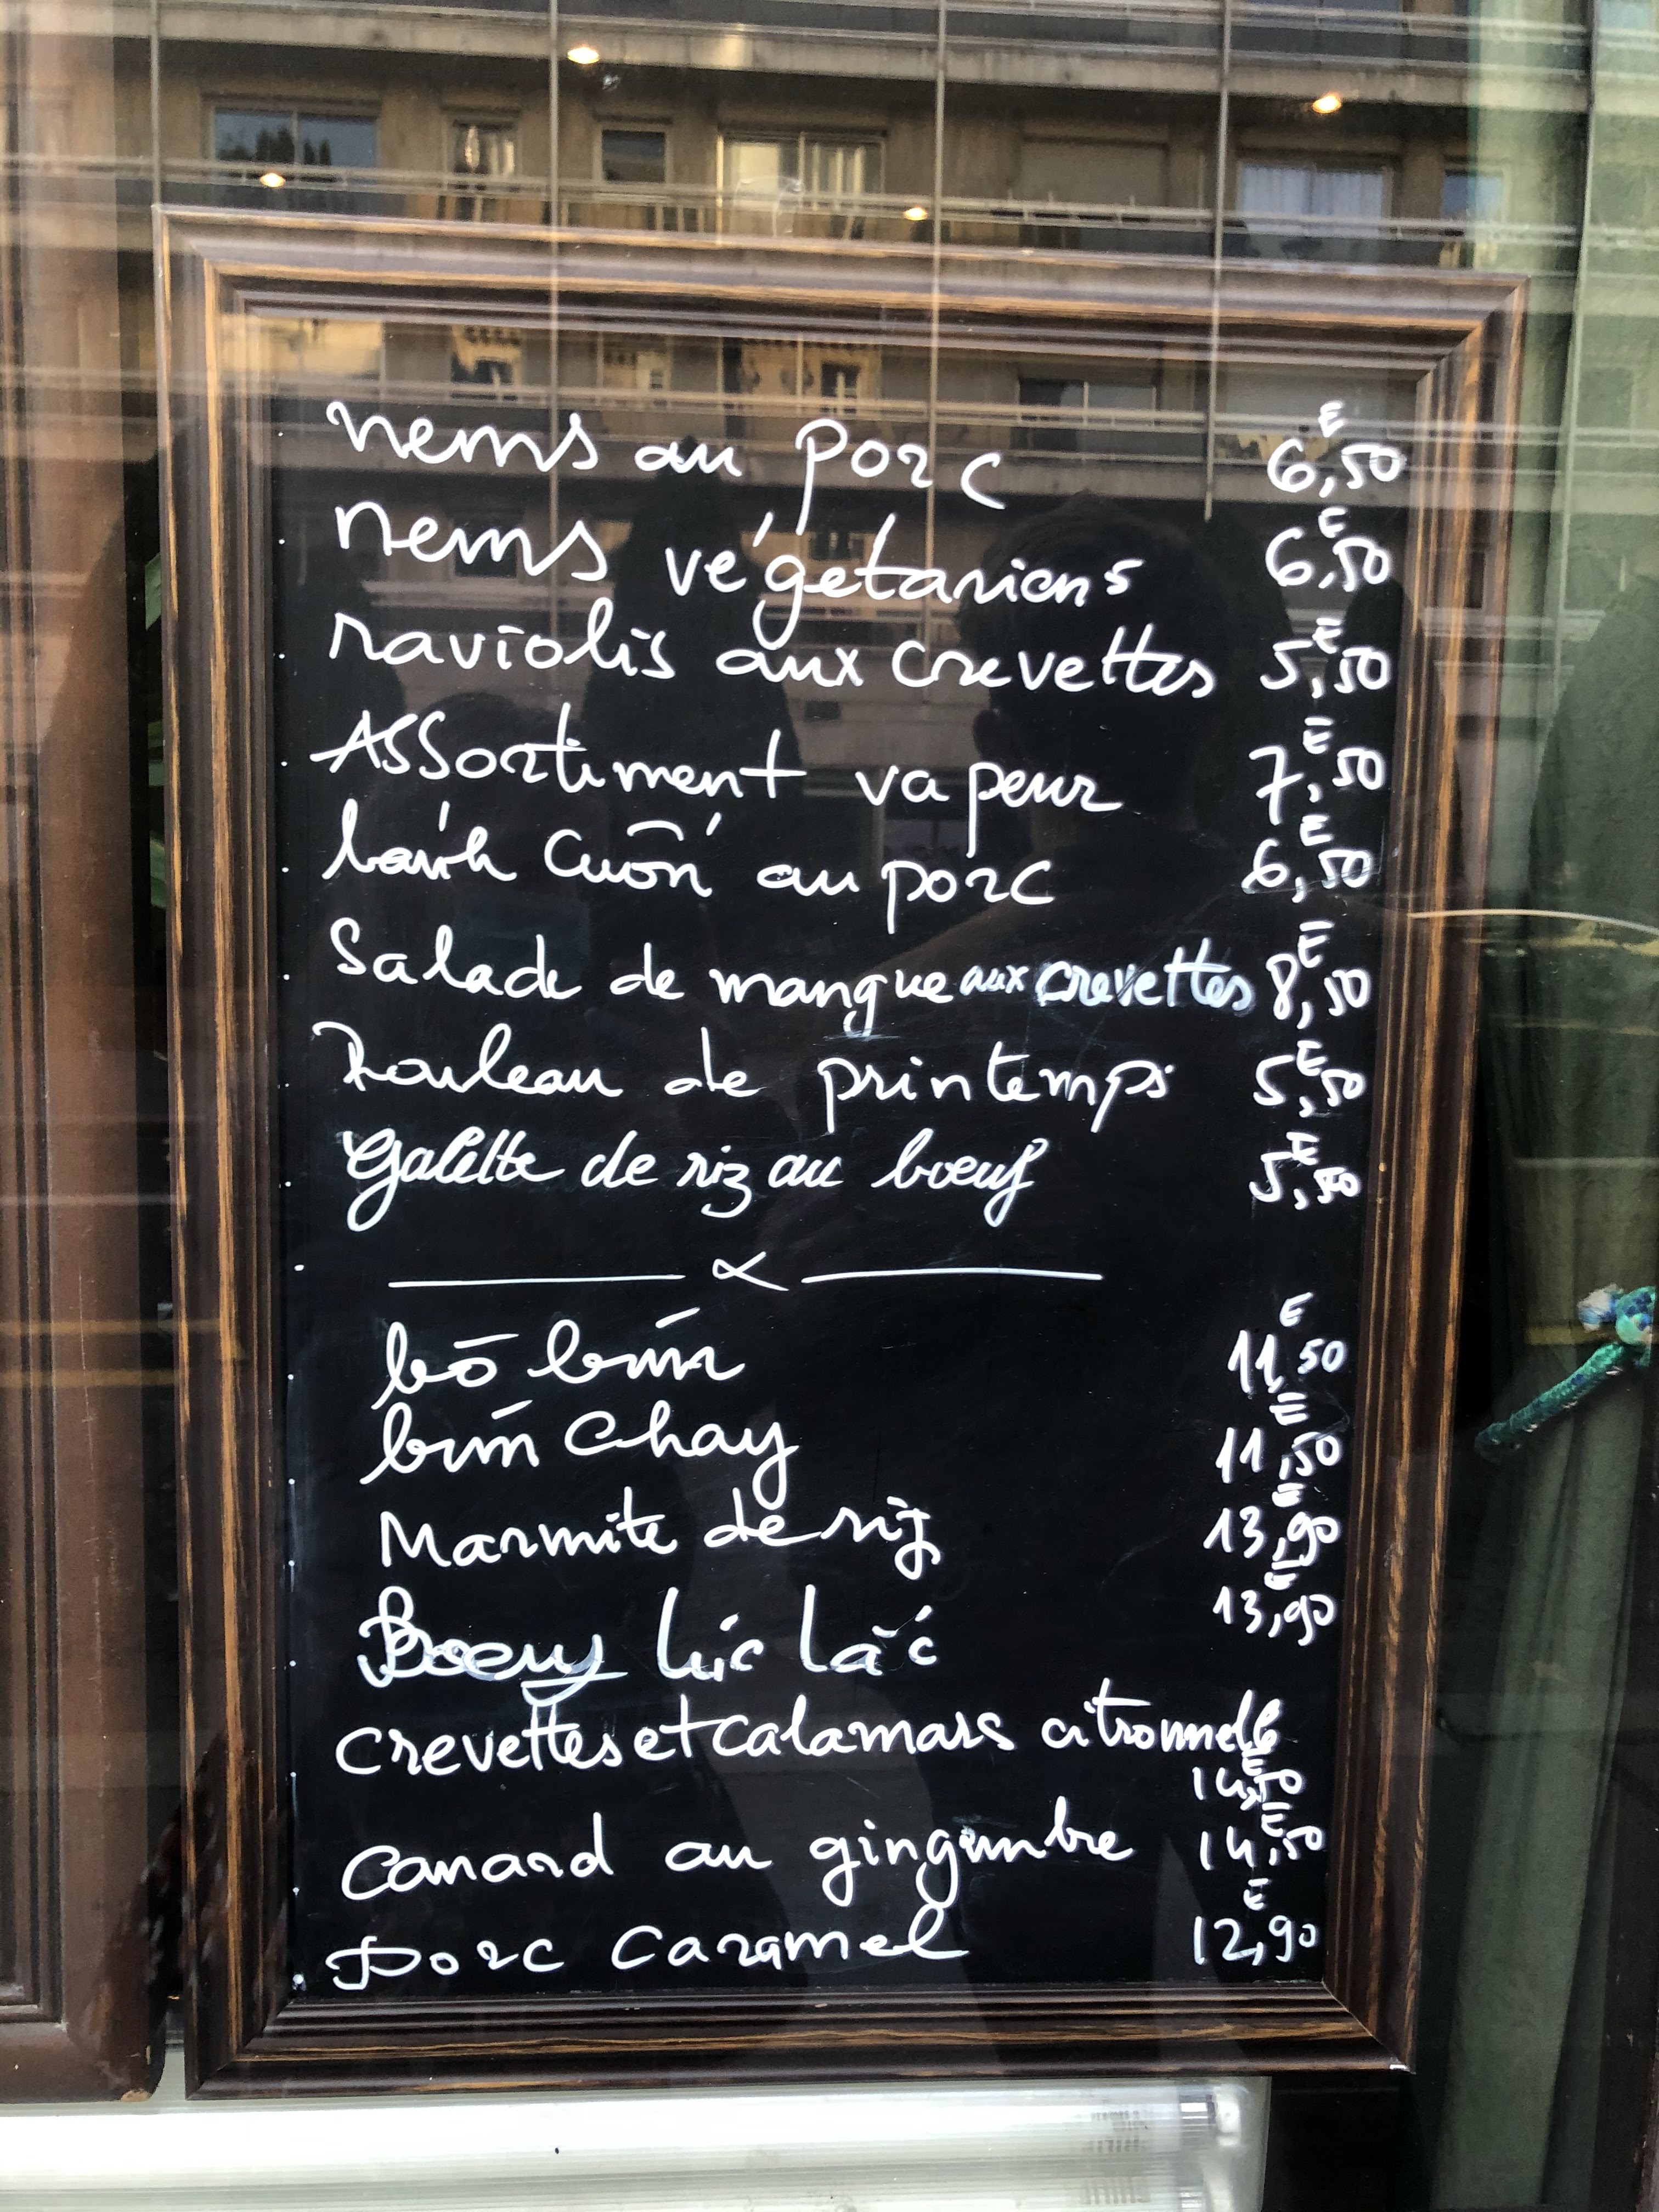 nems au porc 6,50 E
nems végétariens 6,50 E
raviolis aux crevettes 5,50 E
Assortiment vapeur 7,50 E
bánh cuốn au porc 6,50 E
Salade de mangue aux crevettes 8,50 E
Rouleau de printemps 5,50 E
Galette de riz au boeuf 5,50 E
bō bún 11,50 E
bún chay 11,50 E
Marmite de riz 13,90 E
Boeuf lúc lắc 13,90 E
Crevettes et calamars citronnelle
14,50 E
Canard au gingembre 14,50 E
Porc Caramel 12,90 E